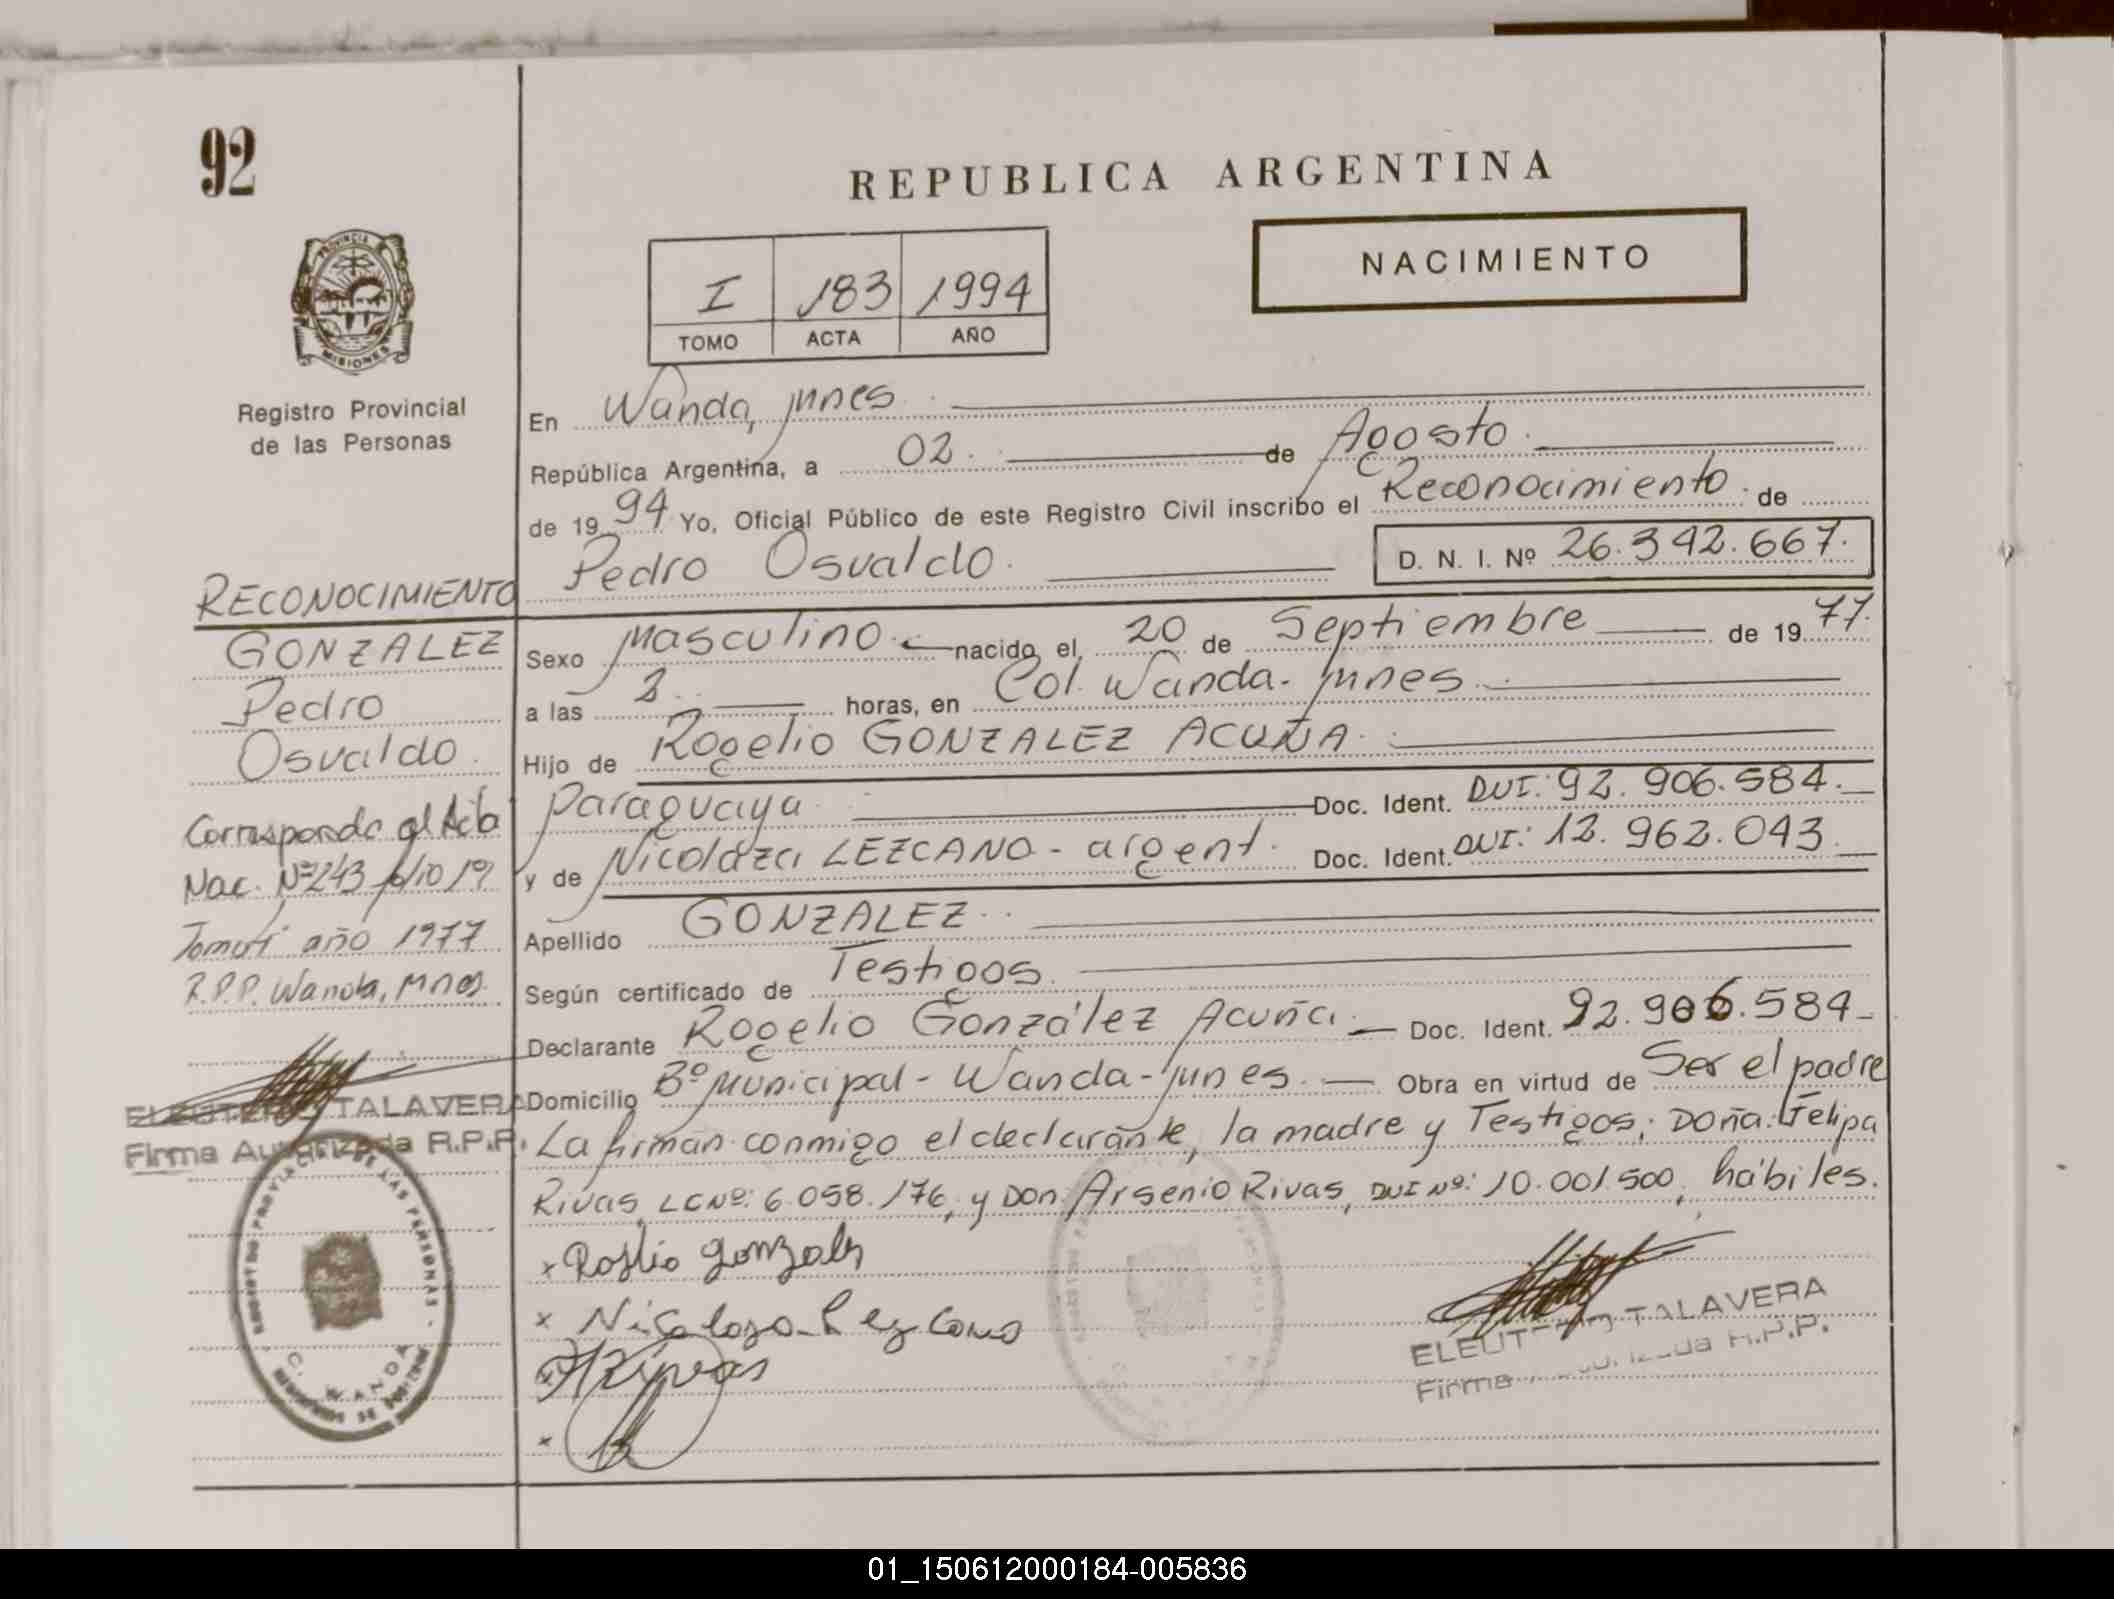 92
REPUBLICA ARGENTINA
NACIMIENTO
I 183 1994
TOMO ACTA AÑO
PROVINCIA DE
MISIONES
Registro Provincial
de las Personas
En Wanda, Mnes.
República Argentina, a 02. de Agosto.
de 1994 Yo, Oficial Público de este Registro Civil inscribo el Reconocimiento. de
Pedro Osvaldo. D. N. I. Nº 26.342.667.
RECONOCIMIENTO
GONZALEZ
Pedro
Osvaldo.
Corresponde al Acta
Nac. Nº 243
Tomo I año 1977
R.P.P. Wanda, Mnes.
ELEUTERIO TALAVERA
Firma Autorizada R.P.P.
REGISTRO PROVINCIAL DE LAS PERSONAS
WANDA
Sexo Masculino. nacido el 20 de Septiembre de 1977.
a las 2. horas, en Col. Wanda - Mnes.
Hijo de Rogelio GONZALEZ ACUÑA.
Paraguaya. Doc. Ident. DUI: 92.906.584.
y de Nicolaza LEZCANO - argent. Doc. Ident. DUI: 12.962.043.
Apellido GONZALEZ.
Según certificado de Testigos.
Declarante Rogelio González Acuña. Doc. Ident. 92.906.584
Domicilio Bº Municipal - Wanda - Mnes. Obra en virtud de Ser el padre
La firman conmigo el declarante, la madre y Testigos; Doña: Felipa
Rivas, LC Nº: 6.058.176, y Don Arsenio Rivas, DUI Nº: 10.001.500, hábiles.
x Roglio Gonzalez
x Nicolaza Lezcano
x Rivas
x
ELEUTERIO TALAVERA
Firma Autorizada R.P.P.
01_150612000184-005836